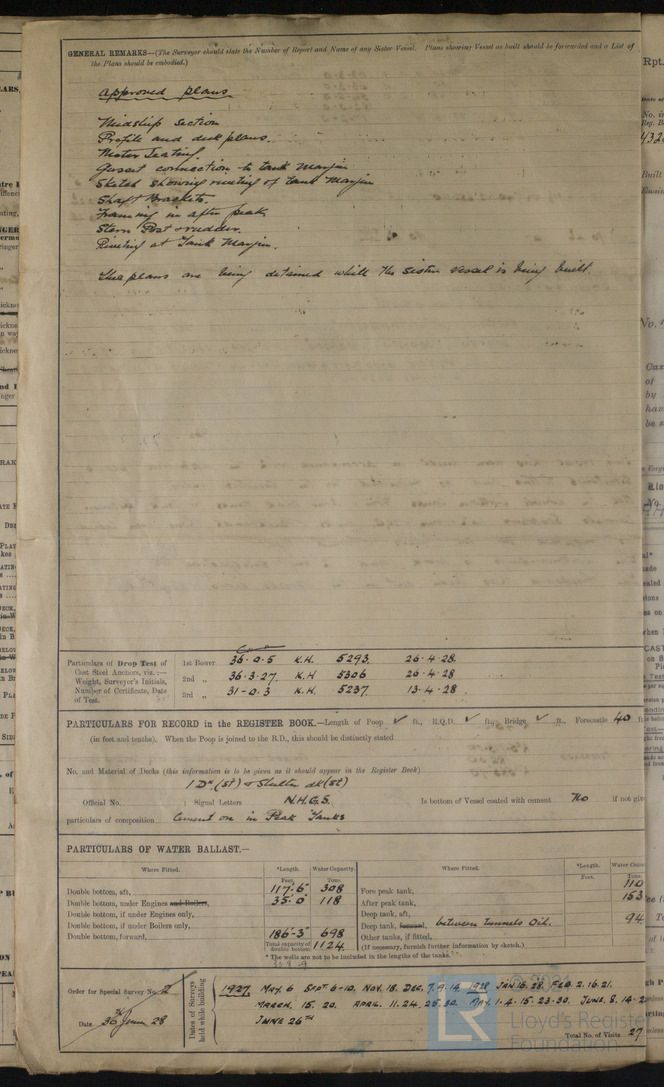 GENERAL REMARKS—(The Surveyor should state the Number of Report and Name of any Sister Vessel. Plans showing Vessel as built should be forwarded and a List of
the Plans should be embodied.)
Approved plans
Midship section
Profile and deck plans.
Motor Seating.
Gusset connection to tank Margin
Sketch showing riveting of tank Margin
Shaft Brackets.
Framing in after peak
Stern Post & rudder.
Riveting at Tank Margin.
The plans are being detained while the sister vessel is being built.
Particulars of Drop Test of
Cast Steel Anchors, viz.:—
Weight, Surveyor's Initials,
Number of Certificate, Date
of Test.
1st Bower 36·0·5 K.H. 5293. 26·4·28.
2nd „ 36·3·27. K.H 5306 26·4·28
3rd „ 31·0·3 K.H. 5237. 13·4·28.
PARTICULARS FOR RECORD in the REGISTER BOOK.—Length of Poop ✓ ft., R.Q.D. ✓ ft., Bridge ✓ ft., Forecastle 40 ft
(in feet and tenths). When the Poop is joined to the B.D., this should be distinctly stated
No. and Material of Decks (this information is to be given as it should appear in the Register Book)
1 Dk (St) & Shelter dk (St)
Official No. Signal Letters N.H.G.S. Is bottom of Vessel coated with cement No if not give
particulars of composition Cement on in Peak Tanks
PARTICULARS OF WATER BALLAST.—
Where Fitted. *Length. Water Capacity. Where Fitted. *Length. Water Capac
Feet. Tons. Feet. Tons.
Double bottom, aft, 117·6" 308 Fore peak tank, 110
Double bottom, under Engines and Boilers, 35·0 118 After peak tank, 153
Double bottom, if under Engines only, Deep tank, aft,
Double bottom, if under Boilers only, Deep tank, forward, between tunnels Oil. 94
Double bottom, forward, 186·3 698 Other tanks, if fitted,
Total capacity of double bottom 1124 (If necessary, furnish further information by sketch.)
* The wells are not to be included in the lengths of the tanks.
Order for Special Survey No.
Date 28
Dates of Surveys
held while building
1927. MAY. 6 SEPT. 6-10. NOV. 18. DEC. 7. 9. 14. 1928 JAN 16. 28. FEB. 2. 16. 21.
MARCH. 15. 20. APRIL. 11. 24. 25. 30. MAY. 1. 4. 15. 23. 30. JUNE. 8. 14. 2
JUNE 26TH
Total No. of Visits 27
© 2021
LR
Lloyd's Register
Foundation